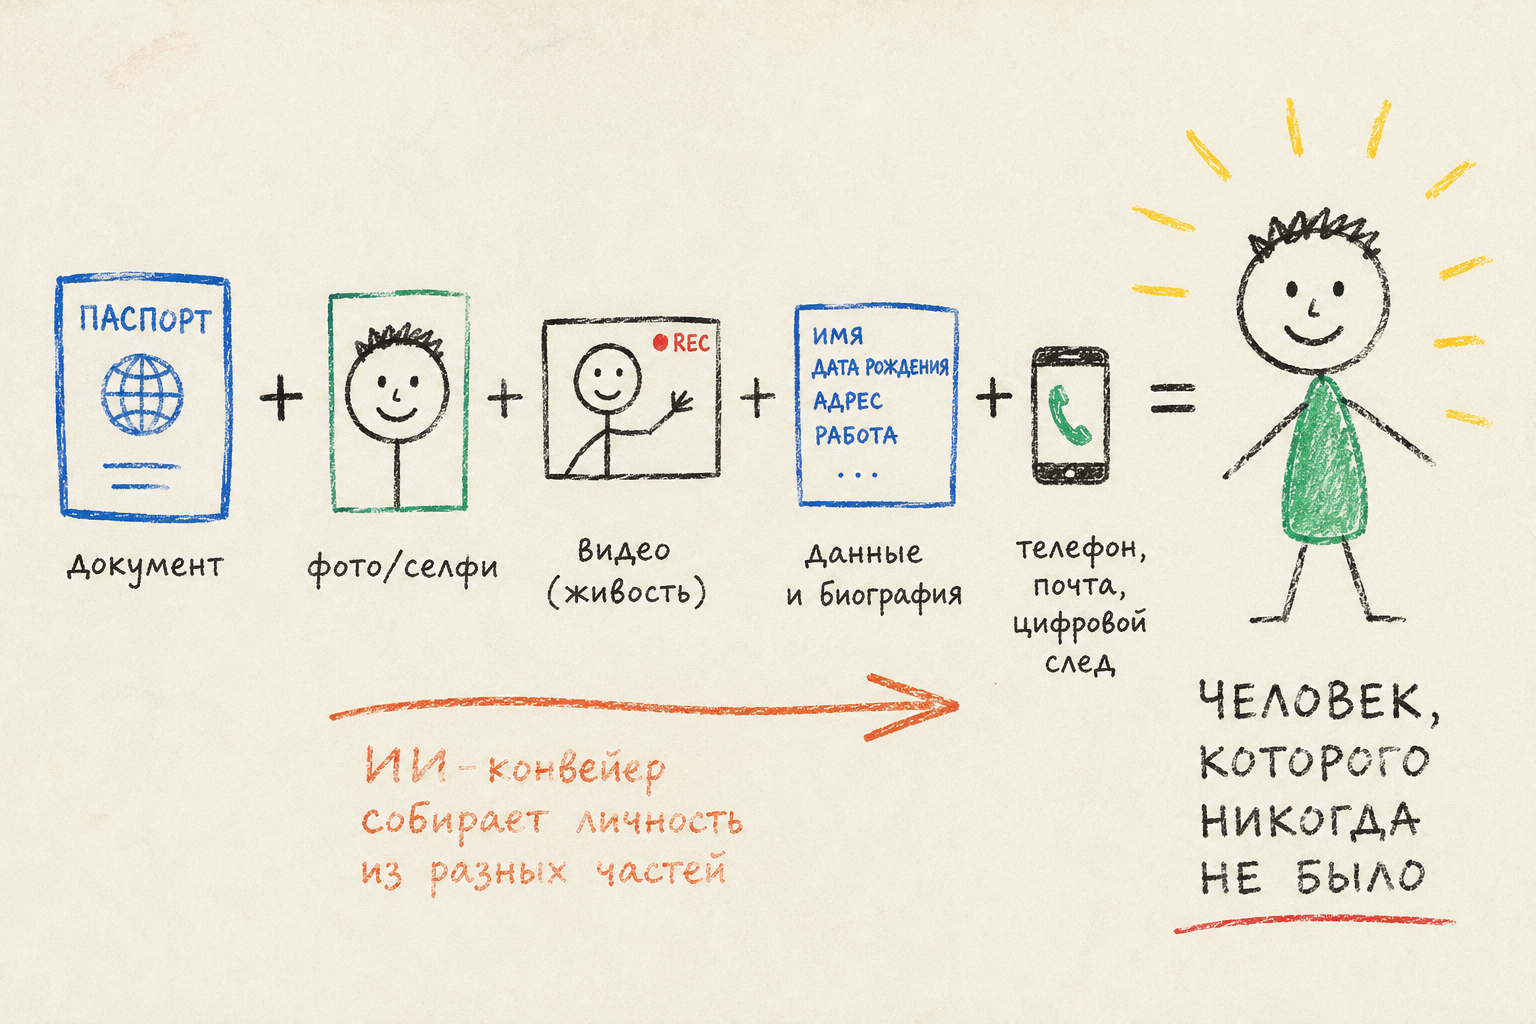 ПАСПОРТ
документ
фото/селфи
REC
видео
(живость)
ИМЯ
ДАТА РОЖДЕНИЯ
АДРЕС
РАБОТА
...
данные
и биография
телефон,
почта,
цифровой
след
ИИ-конвейер
собирает личность
из разных частей
ЧЕЛОВЕК,
КОТОРОГО
НИКОГДА
НЕ БЫЛО